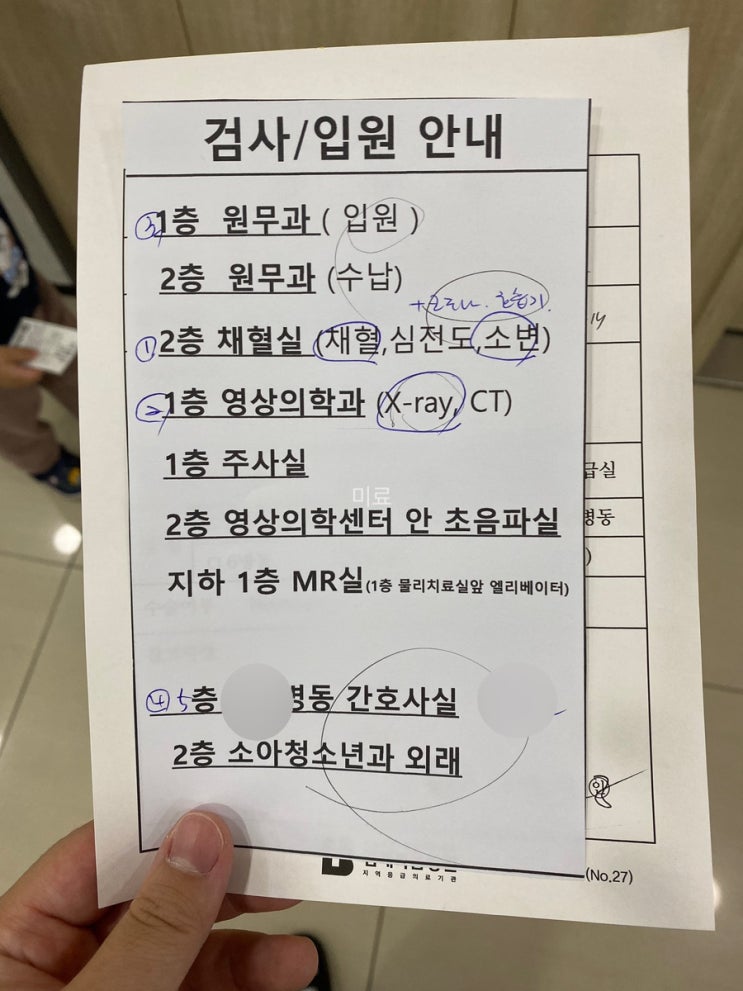 검사/입원 안내
③ 1층 원무과 ( 입원 )
2층 원무과 (수납)
+코로나. 호흡기.
① 2층 채혈실 (채혈,심전도,소변)
② 1층 영상의학과 (X-ray, CT)
1층 주사실
미료
2층 영상의학센터 안 초음파실
지하 1층 MR실(1층 물리치료실앞 엘리베이터)
④ 5층 병동 간호사실
2층 소아청소년과 외래
급실
병동
)
지역응급의료기관
(No.27)